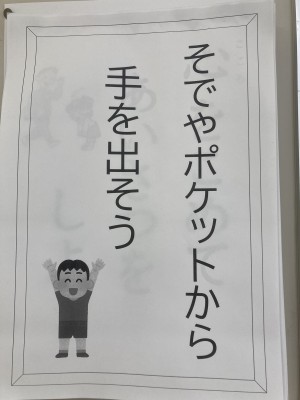 そでやポケットから
手を出そう